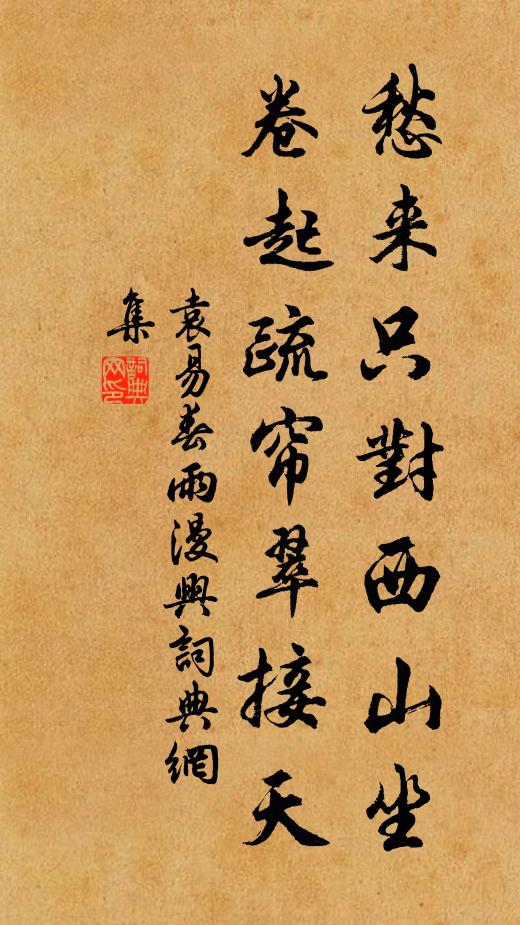 愁来只對西山坐
卷起疏帘翠接天
袁易春雨漫興詞典網
集
詞典
网印